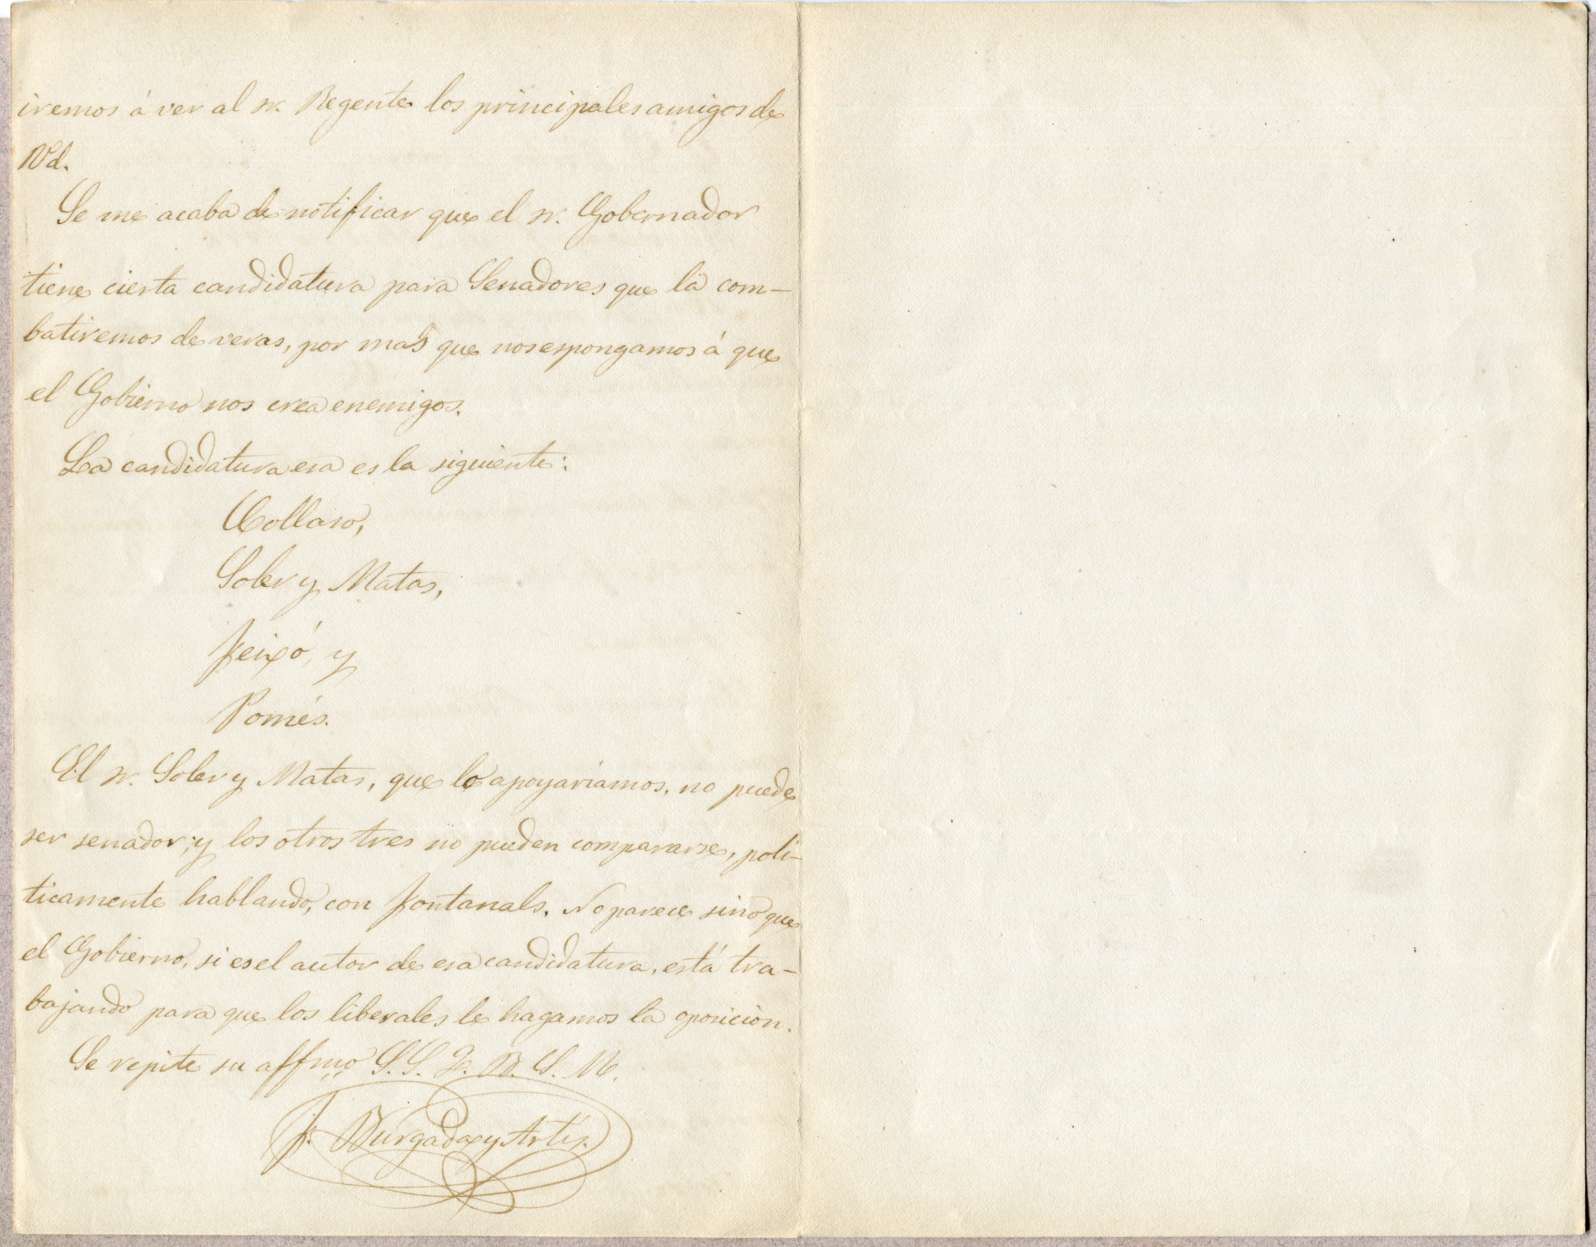 iremos á ver al sr. Regente los principales amigos de
Vd.
Se me acaba de notificar que el sr. Gobernador
tiene cierta candidatura para Senadores que la com-
batiremos de veras, por mas que nos espongamos á que
el Gobierno nos crea enemigos.
La candidatura esa es la siguiente:
Collaso,
Soler y Matas,
Feixó, y
Pomés.
El sr. Soler y Matas, que lo apoyaríamos, no puede
ser senador; y los otros tres no pueden compararse, polí-
ticamente hablando, con Fontanals. No parece sino que
el Gobierno, si es el autor de esa candidatura, está tra-
bajando para que los liberales le hagamos la oposicion.
Se repite su affmo S. S. Q. B. S. M.
F. Burgada y Artís.